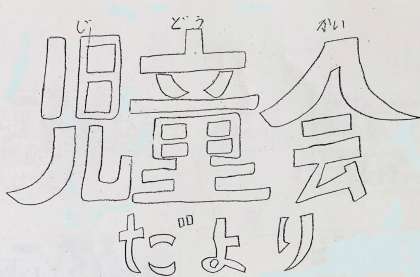 じ どう かい
児童会
だより